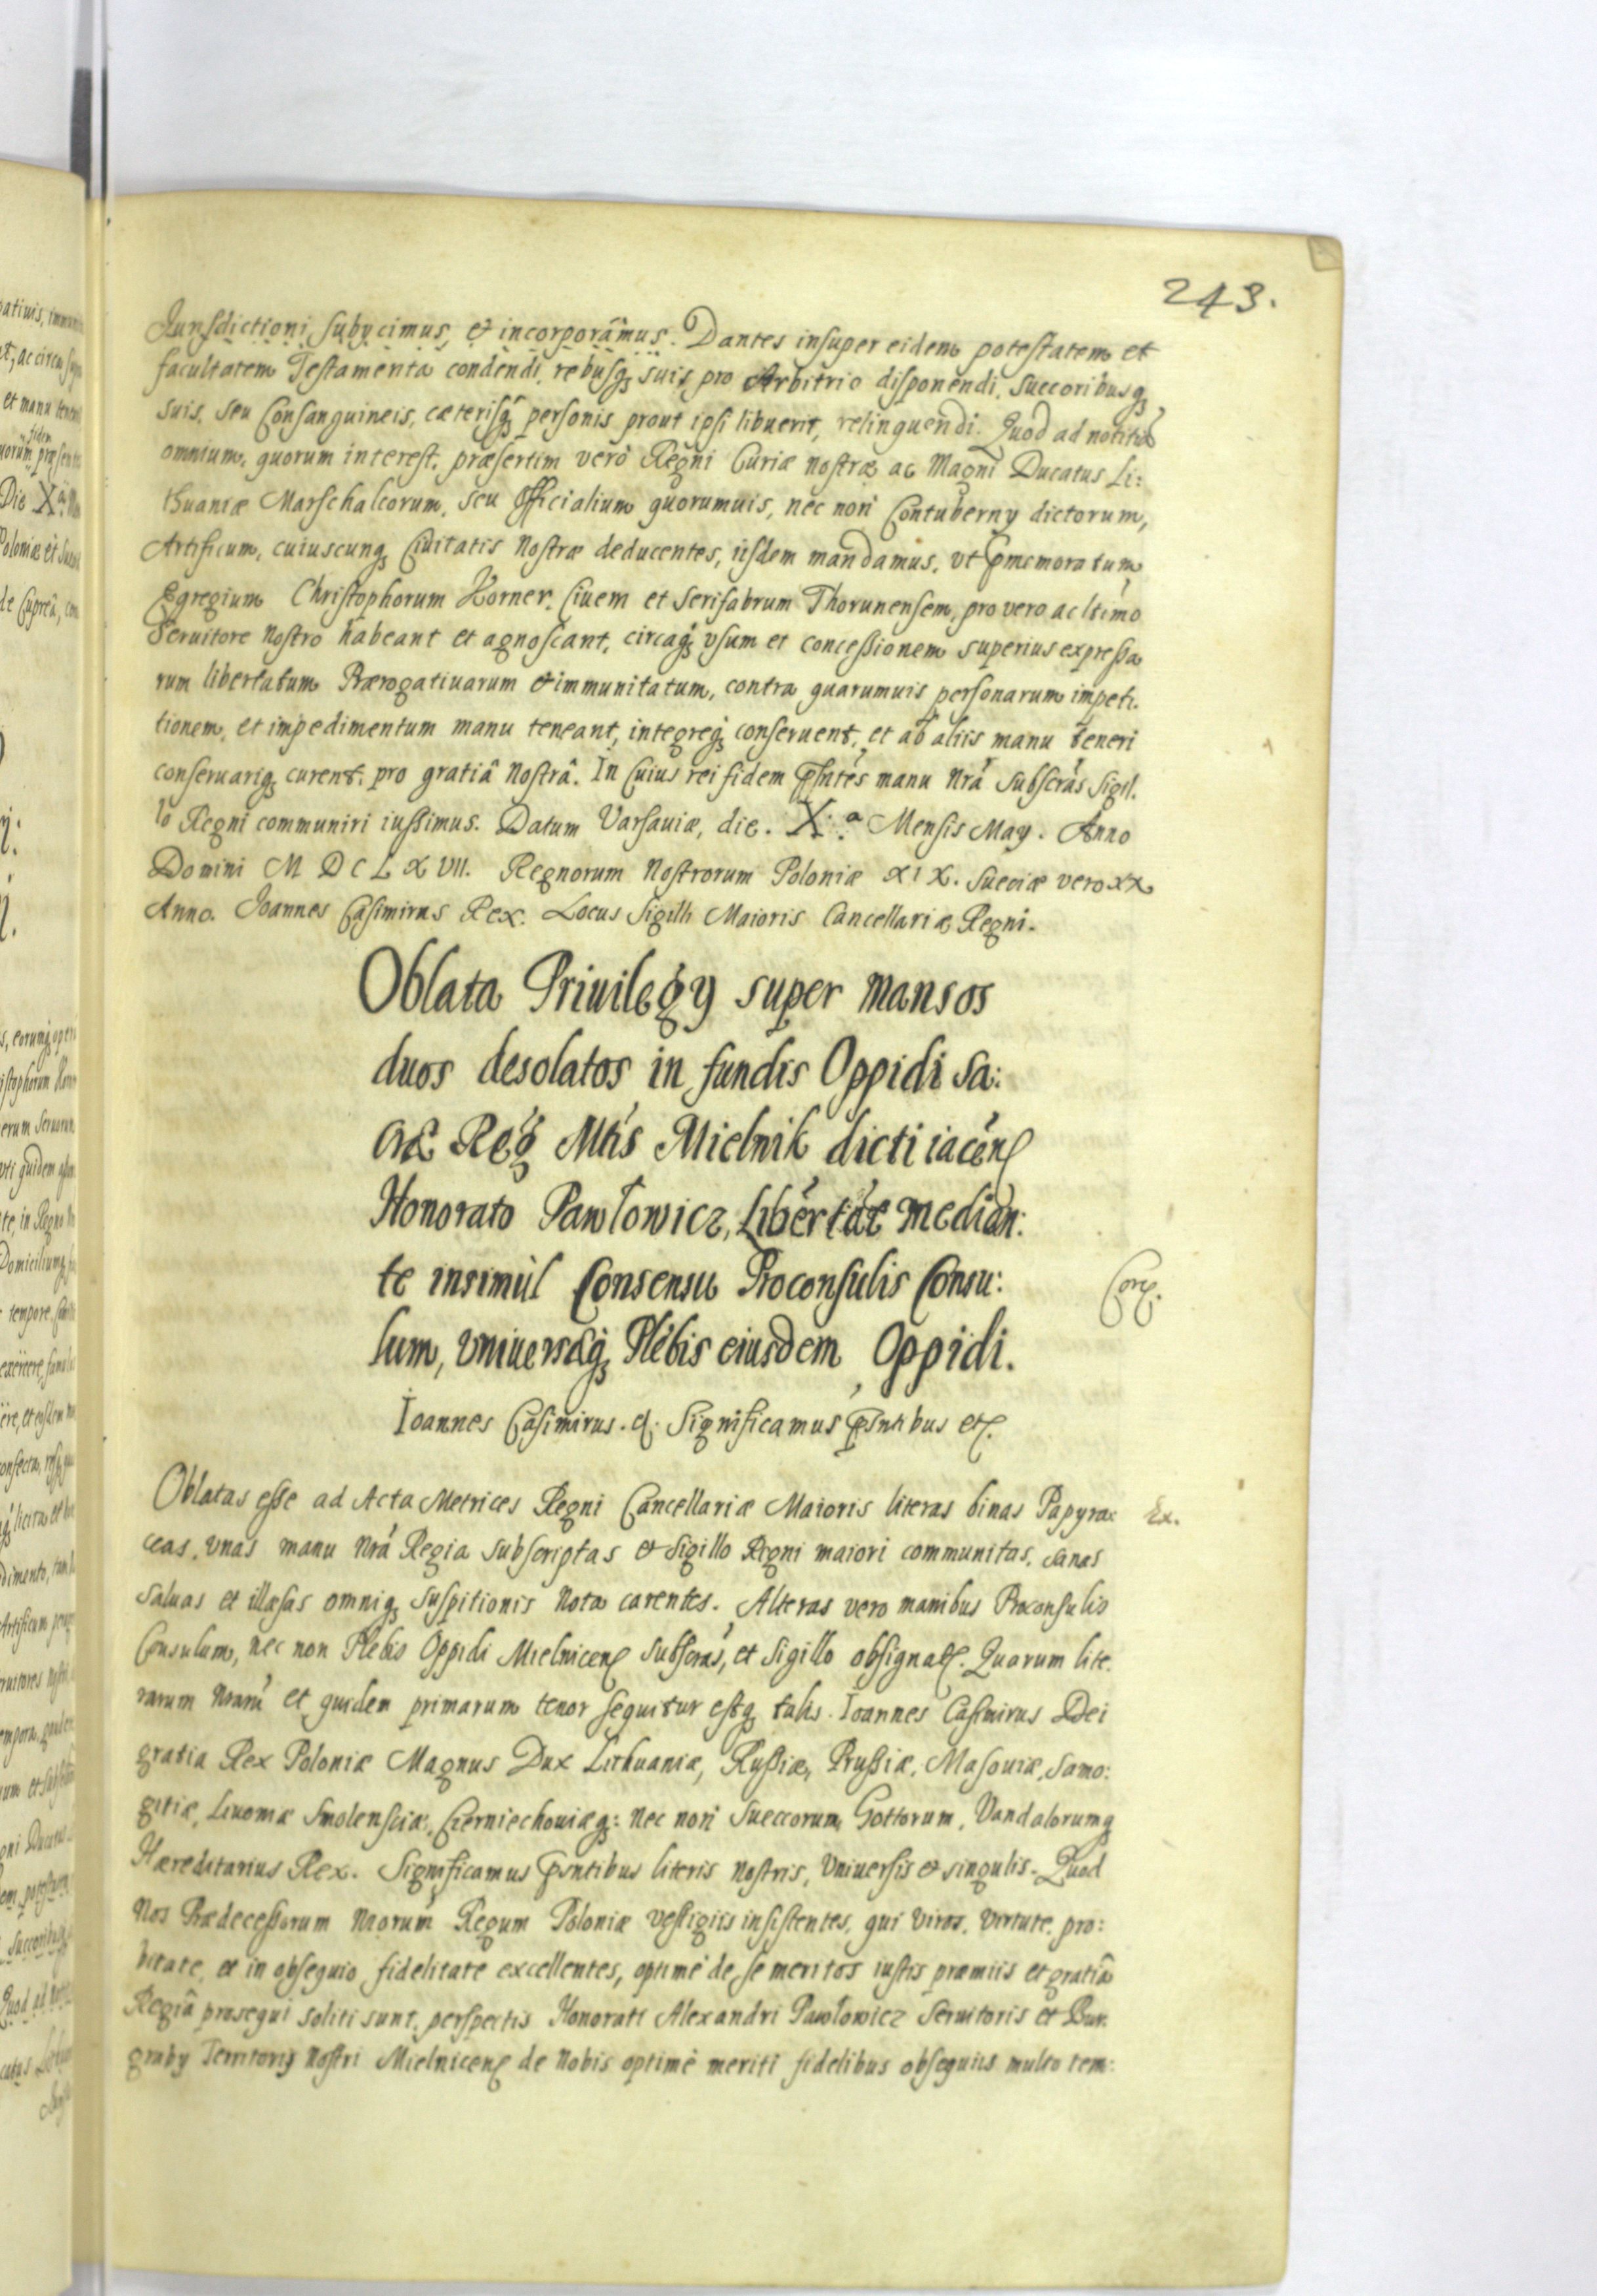 243.
Jurisdictioni, subycimus, et incorporamus. Dantes insuper eidem potestatem et
facultatem Testamenta condendi, rebusq; suis pro Arbitrio disponendi, succoribusq;
suis, seu Consanguineis, cæterisq; personis prout ipsi libuerit, relinquendi. Quod ad notitiã
omnium, quorum interest, præsertim verò Regni Curiæ nostræ ac Magni Ducatus Li:
thuaniæ Marschalcorum, seu Officialium quorumuis, nec non Contuberny dictorum,
Artificum, cuiuscunq; Ciuitatis Nostræ deducentes, iisdem mandamus, vt p̃memoratum
Egregium Christophorum Horner, Ciuem et Serifabrum Thorunensem, pro vero ac ltimo
Seruitore Nostro habeant et agnoscant, circaq; vsum et concessionem superius expressa
rum libertatum Prærogatiuarum et immunitatum, contra quarumuis personarum impeti.
tionem, et impedimentum manu teneant, integreq; conseruent, et ab aliis manu teneri
conseruariq; curent, pro gratiâ Nostrâ. In Cuius rei fidem p̃sntes manu nrã subscras Sigil.
lo Regni communiri iussimus. Datum Varsauiæ, die. X.ª Mensis May. Anno
Domini M D C L X VII. Regnorum Nostrorum Poloniæ XIX. Sueciæ vero XX
Anno. Joannes Casimirus Rex. Locus Sigilli Maioris Cancellariæ Regni.
Oblata Priuilegy super mansos
duos desolatos in fundis Oppidi Sa:
cræ Reg Mtis Mielnik dicti iacen
Honorato Pawłowicz, Libertate median:
te insimùl Consensu Proconsulis Consu:
lum, vniuersæq; Plebis eiusdem Oppidi.
Corr.
Ioannes Casimirus. &. Significamus p̃sntibus etc.
Oblatas esse ad Acta Metrices Regni Cancellariæ Maioris literas binas Papyra: Ex.
ceas, vnas manu nrã Regia subscriptas et Sigillo Regni maiori communitas, sanas
saluas et illæsas omniq; suspitionis nota carentes. Alteras vero manibus Proconsulis
Consulum, nec non Plebis Oppidi Mielnicen subscras, et Sigillo obsignat. Quarum lite.
rarum nrarũ et quidem primarum tenor sequitur estq; talis. Ioannes Casimirus Dei
gratia Rex Poloniæ Magnus Dux Lithuaniæ, Russiæ, Prussiæ, Masouiæ, Samo:
gitiæ, Liuoniæ Smolensciæ, Czerniechouiæq; nec non Sueccorum, Gottorum, Vandalorumq;
Hæreditarius Rex. Significamus p̃sntibus literis nostris, Vniuersis et singulis. Quod
Nos Prædecessorum nrorum Regum Poloniæ vestigiis insistentes, qui viros, virtute, pro:
bitate, et in obsequio fidelitate excellentes, optimé de se meritos iustis præmiis et gratiâ
Regiâ prosequi soliti sunt, perspectis Honorati Alexandri Pawłowicz Seruitoris et Bur.
graby Territory Nostri Mielnicen de Nobis optimè meriti fidelibus obsequiis multo tem: